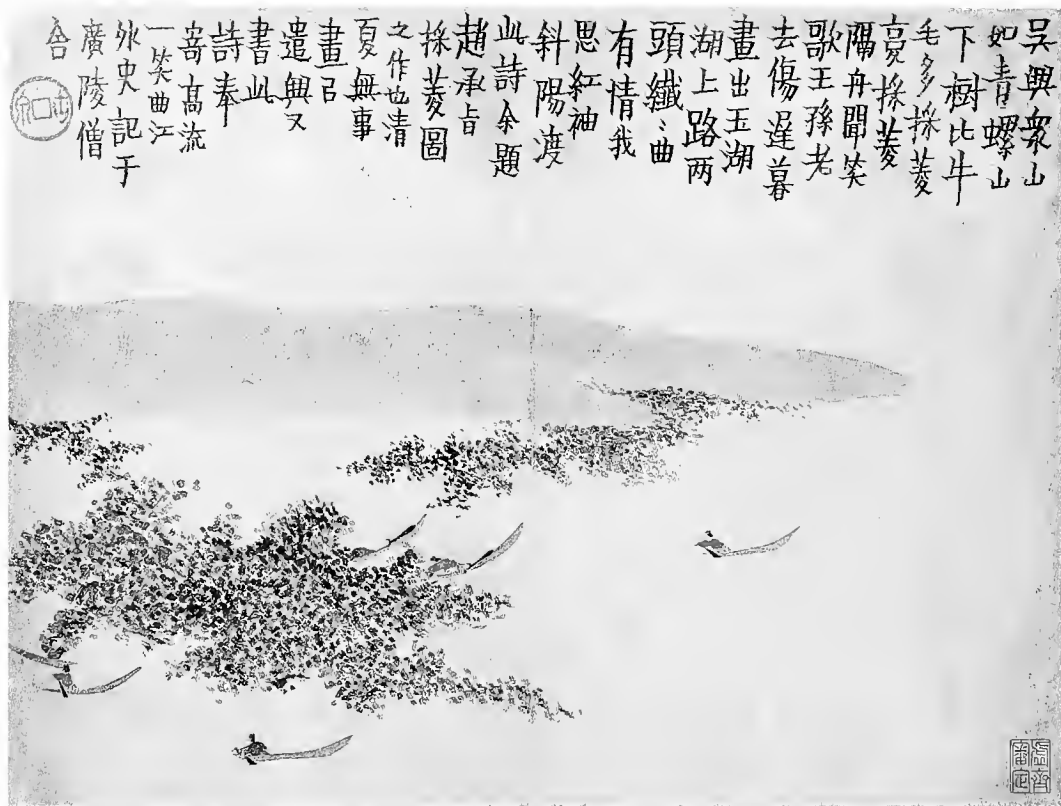 吳興衆山
如青螺山
下樹比牛
毛多採菱
复採菱
隔舟聞笑
歌王孫老
去傷遲暮
畫出玉湖
湖上路两
頭纖〻曲
有情我
思紅袖
斜陽渡
此詩余題
趙承旨
採菱圖
之作也清
夏無事
畫已
遣興又
書此
詩奉
寄髙流
一笑曲江
外史記于
廣陵僧
舍
虛齋
審定